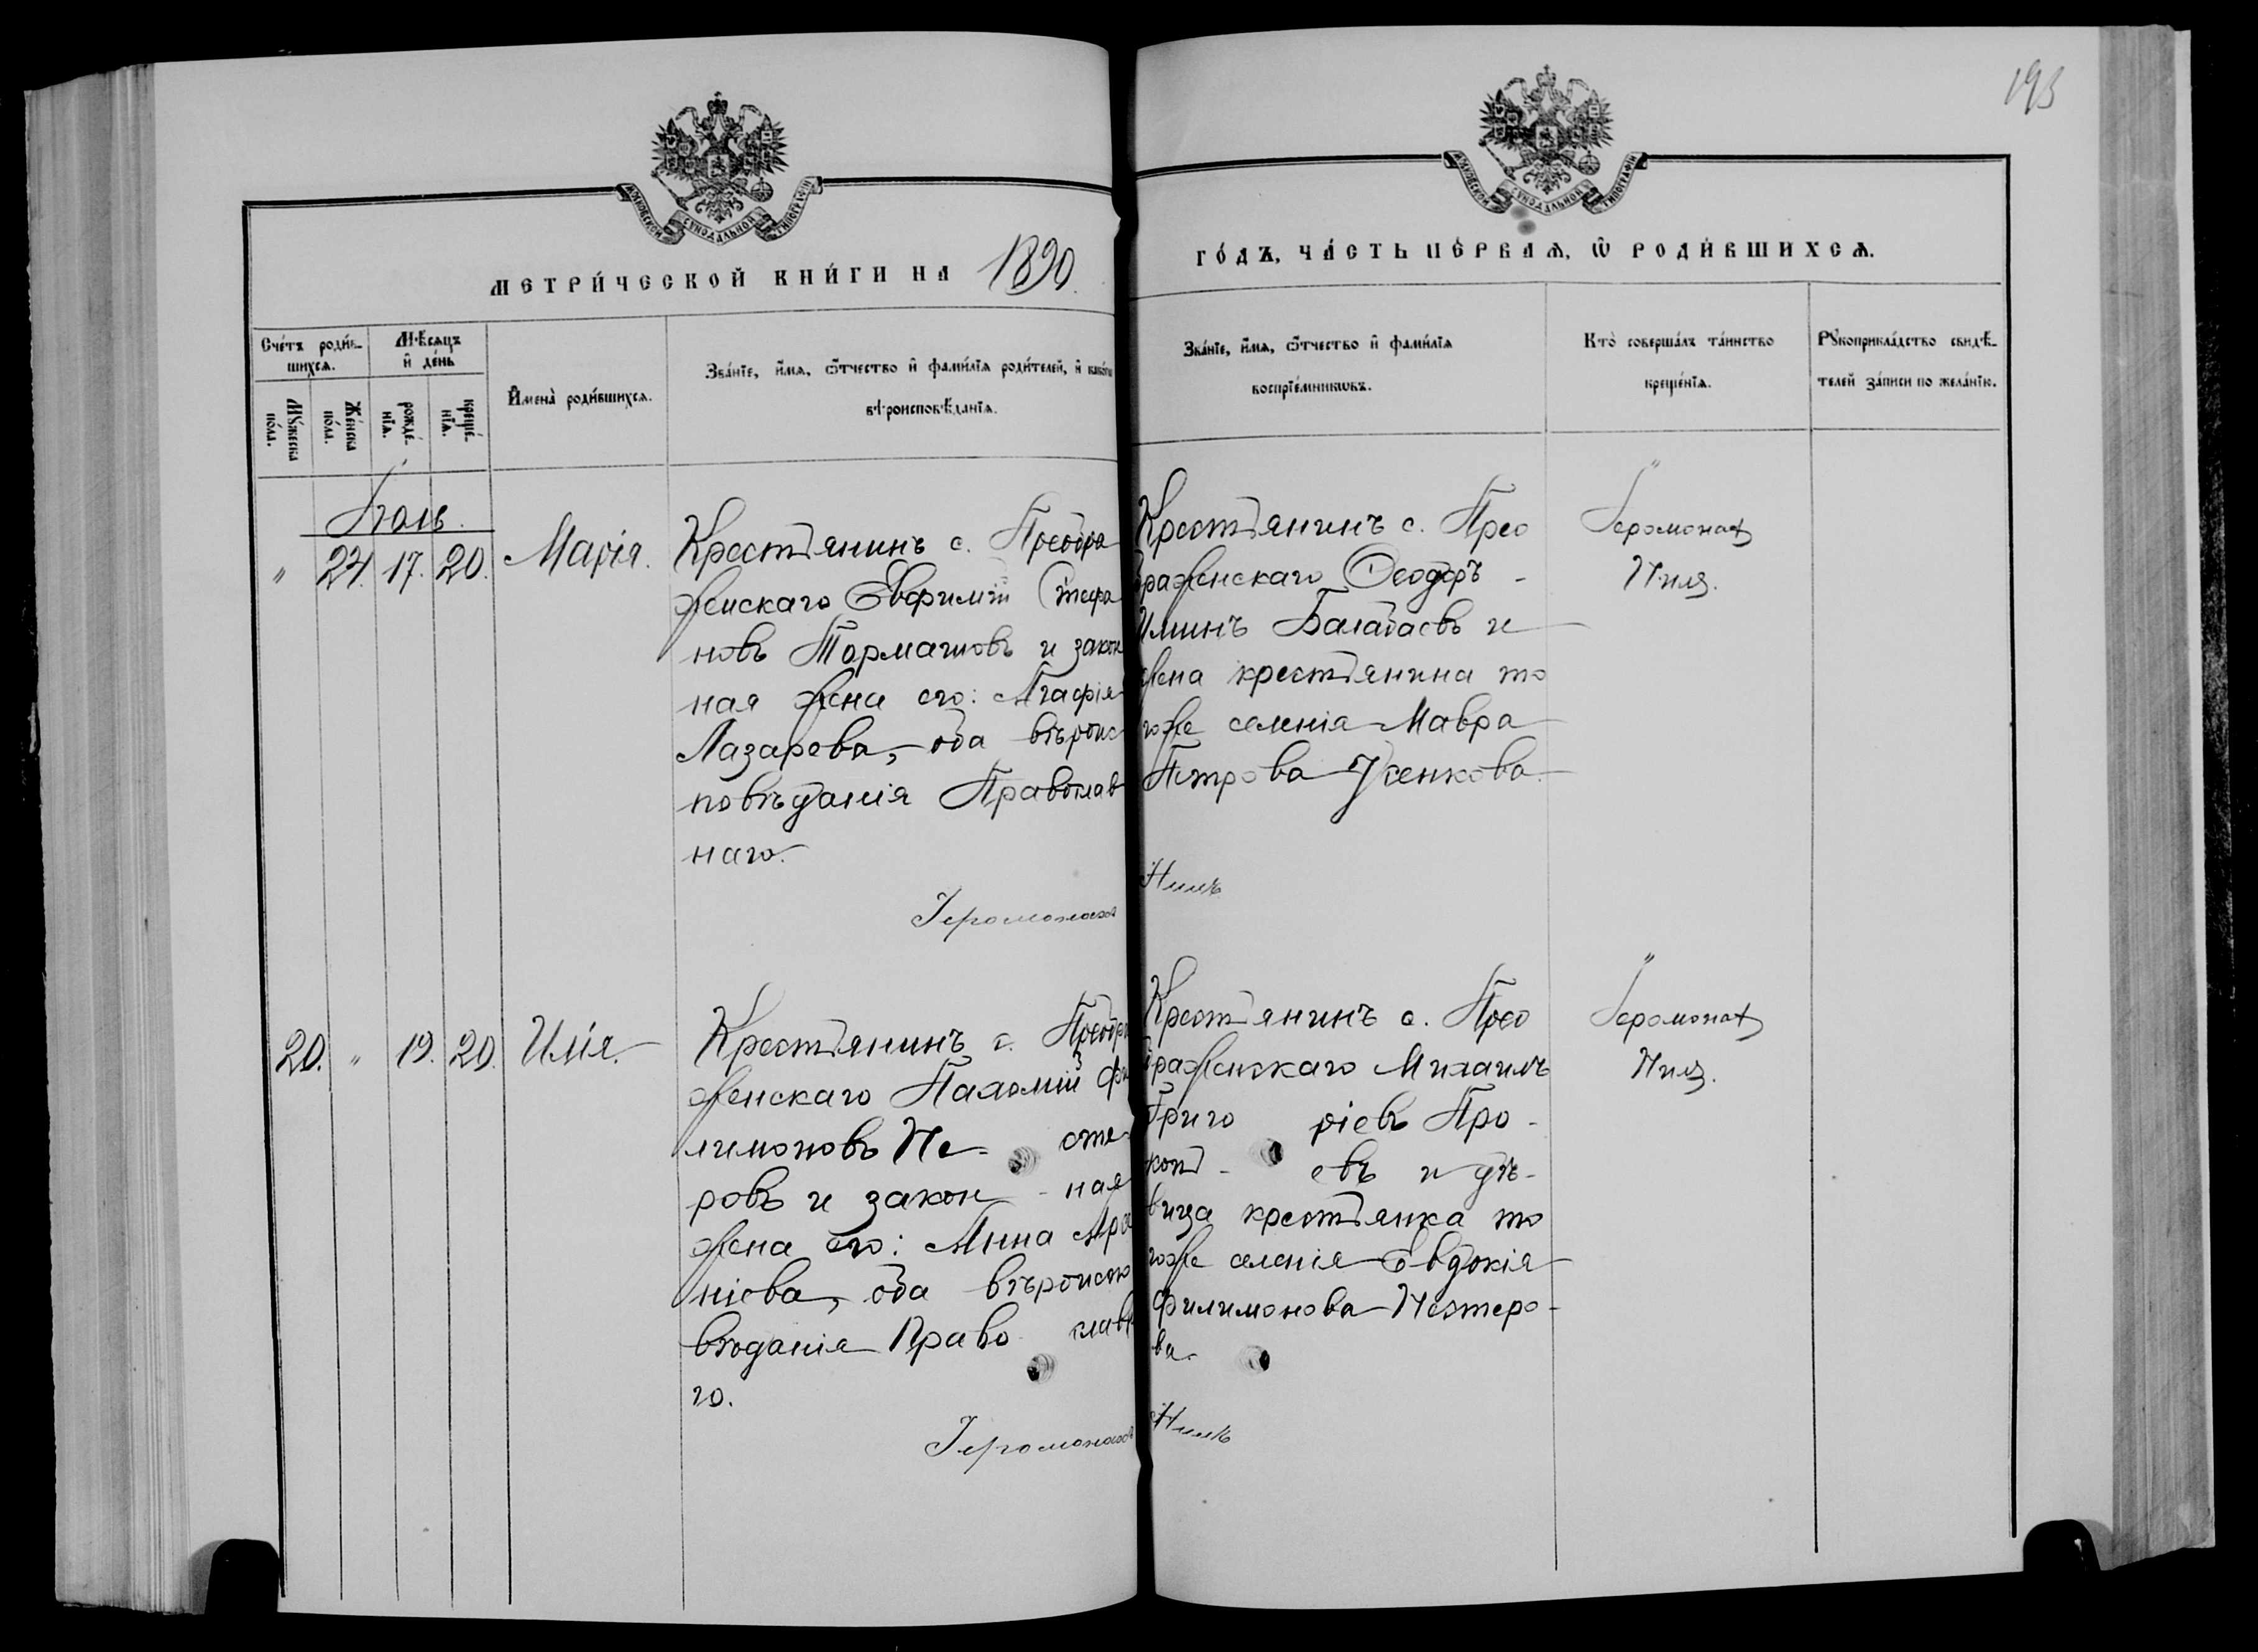 193
МОСКОВСКОЙ СѴНОДАЛЬНОЙ ТИПОГРАФІИ
МОСКОВСКОЙ СѴНОДАЛЬНОЙ ТИПОГРАФІИ
МЕТРИ́ЧЕСКОЙ КНИ́ГИ НА 1890
ГО́ДЪ, ЧА́СТЬ ПЕ́РВАѦ, Ѡ РОДИ́ВШИХСѦ.
Сче́тъ роди́в-
шихсѧ.
Мѣ́сѧцъ
и҆ де́нь
Мꙋ́жеска
по́ла.
Же́нска
по́ла.
рожде́-
нїѧ.
креще́-
нїѧ.
И҆мена̀ роди́вшихсѧ.
Зва́нїе, и҆́мѧ, ѻ҆́тчество и҆ фами́лїѧ роди́телей, и҆ како́гѡ
вѣроисповѣ́данїѧ.
Зва́нїе, и҆́мѧ, ѻ҆́тчество и҆ фами́лїѧ
воспрїе́мникѡвъ.
Кто̀ соверша́лъ та́инство
креще́нїѧ.
Рꙋкоприкла́дство свидѣ́-
телей за́писи по жела́нїю.
Іюль.
" 24. 17. 20. Марія.
Крестьянинъ с. Преобра
женскаго Евфимій Стефа
новъ Тормашовъ и закон
ная жена его: Агафія
Лазарева, оба вѣроис
повѣданія Православ
наго.
Іеромонахъ
Крестьянинъ с. Прео
браженскаго Ѳеодоръ -
Ильинъ Балабаевъ и
жена крестьянина то
гоже селенія Мавра
Петрова Усенкова.
Нилъ
Іеромонах
Нилъ.
20. " 19. 20. Илія.
Крестьянинъ с. Преобра
женскаго Пахомій Фи
лимоновъ Не- сте
ровъ и закон - ная
жена его: Анна
ніева, оба вѣроиспо
вѣданія Право славн
го.
Іеромонахъ
Крестьянинъ с. Прео
браженскаго Михаилъ
Григо ріевъ Про-
копь- евъ и дѣ-
вица крестьянка то
гоже селенія Евдокія
Филимонова Нестеро-
ва.
Нилъ
Іеромонах
Нилъ.